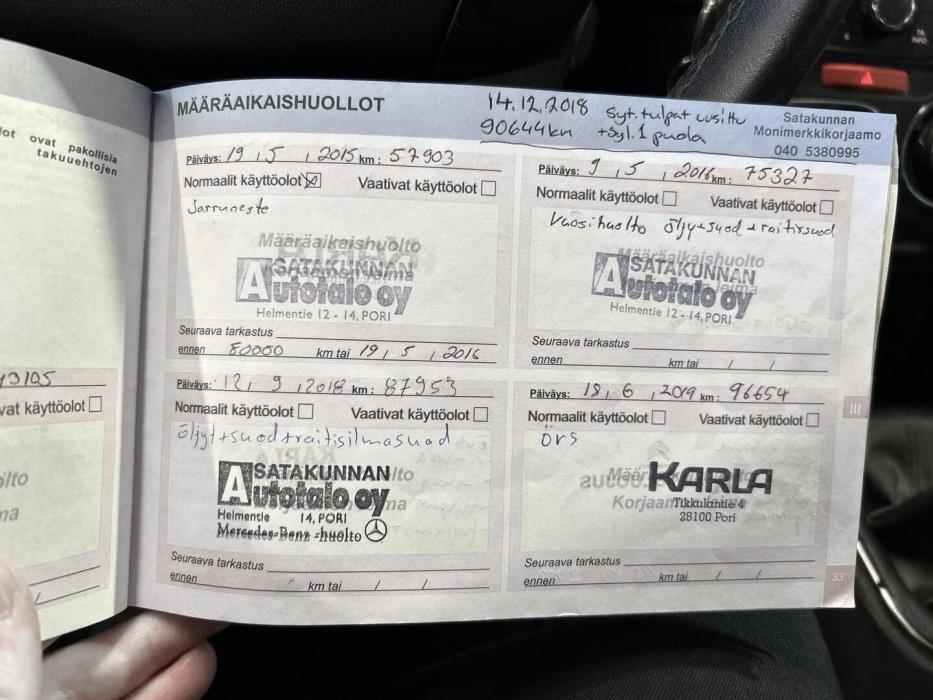 lot ovat pakollisia
takuuehtojen
vat käyttöolot
MÄÄRÄAIKAISHUOLLOT
14.12.2018 syt.tulpat uusittu
90644km +syl.1 puola
Satakunnan
Monimerkkikorjaamo
040 5380995
Päiväys: 19, 5, 2015 km: 57903
Normaalit käyttöolot Vaativat käyttöolot
Jarruneste
Määräaikaishuolto
ASATAKUNNAN
Autotalo oy
Helmentie 12 - 14, PORI
Seuraava tarkastus
ennen 80000 km tai 19, 5, 2016
Päiväys: 9, 5, 2016 km: 75327
Normaalit käyttöolot Vaativat käyttöolot
Vuosihuolto öljy+suod+raitissuod
Määräaikaishuolto
ASATAKUNNAN
Autotalo oy
Helmentie 12 - 14, PORI
Seuraava tarkastus
ennen km tai / /
Päiväys: 12, 9, 2018 km: 87953
Normaalit käyttöolot Vaativat käyttöolot
öljyt+suod+raitisilmasuod
ASATAKUNNAN
Autotalo oy
Helmentie 14, PORI
Mercedes-Benz -huolto
Seuraava tarkastus
ennen km tai / /
Päiväys: 18, 6, 2019 km: 96654
Normaalit käyttöolot Vaativat käyttöolot
ÖRS
KARLA
Tikkulantie 4
28100 Pori
Seuraava tarkastus
ennen km tai / /
III
33
TA
INFO